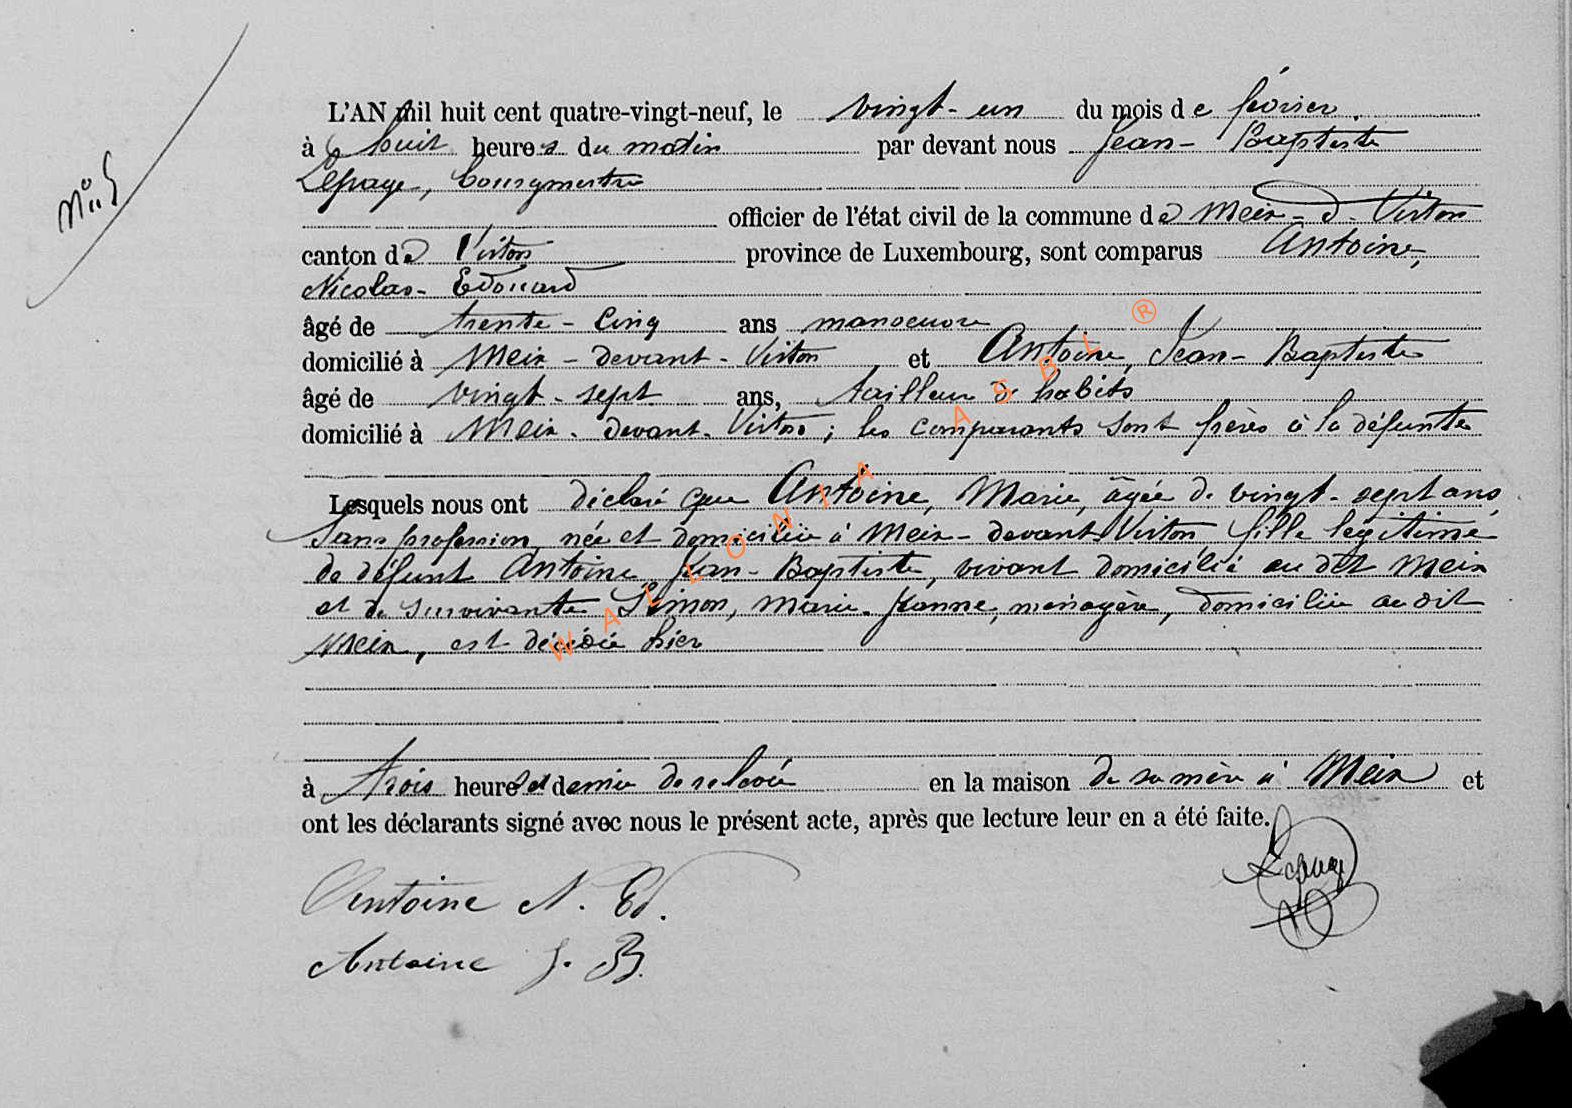 N° 5
L'AN mil huit cent quatre-vingt-neuf, le vingt-un du mois de février.
à huit heures du matin par devant nous Jean-Baptiste
Lepage, bourgmestre
officier de l'état civil de la commune de Meix-d-Virton
canton de Virton province de Luxembourg, sont comparus Antoine,
Nicolas-Edouard
âgé de trente-cinq ans manoeuvre
domicilié à Meix-devant-Virton et Antoine, Jean-Baptiste
âgé de vingt-sept ans, tailleur d'habits
domicilié à Meix-devant-Virton; les comparants sont frères à la défunte
Lesquels nous ont déclaré que Antoine, Marie, âgée de vingt-sept ans
sans profession, née et domiciliée à Meix-devant-Virton fille légitime
de défunt Antoine Jean-Baptiste, vivant domicilié au dit Meix
et de survivante Simon, Marie-Jeanne, ménagère, domiciliée au dit
Meix, est décédée hier
à trois heures et demie de relevée en la maison de sa mère à Meix et
ont les déclarants signé avec nous le présent acte, après que lecture leur en a été faite.
Lepage
Antoine N. Ed.
Antoine J. B.
WALLONIA ASBL ®